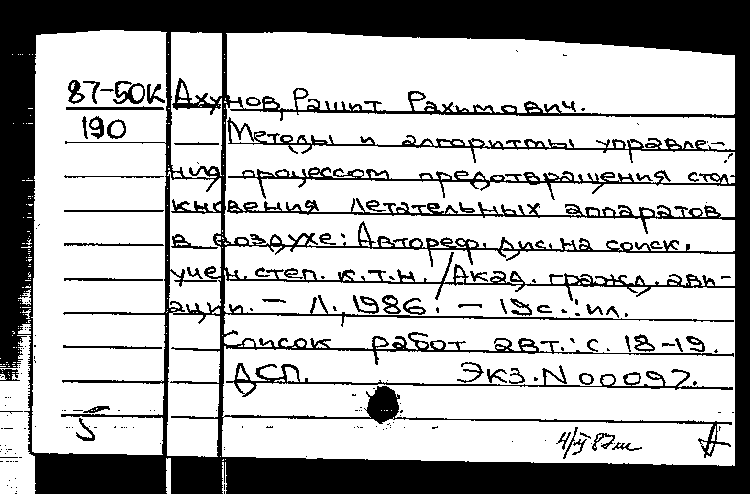 87-50К Ахунов, Рашит Рахимович.
190 Методы и алгоритмы управле-
ния процессом предотвращения стол-
кновения летательных аппаратов
в воздухе: Автореф. дис. на соиск.
учен. степ. к.т.н. /Акад. гражд. ави-
ации. – Л., 1986. – 19с.: ил.
Список работ авт.: с. 18-19.
ДСП. Экз. N 00097.
5